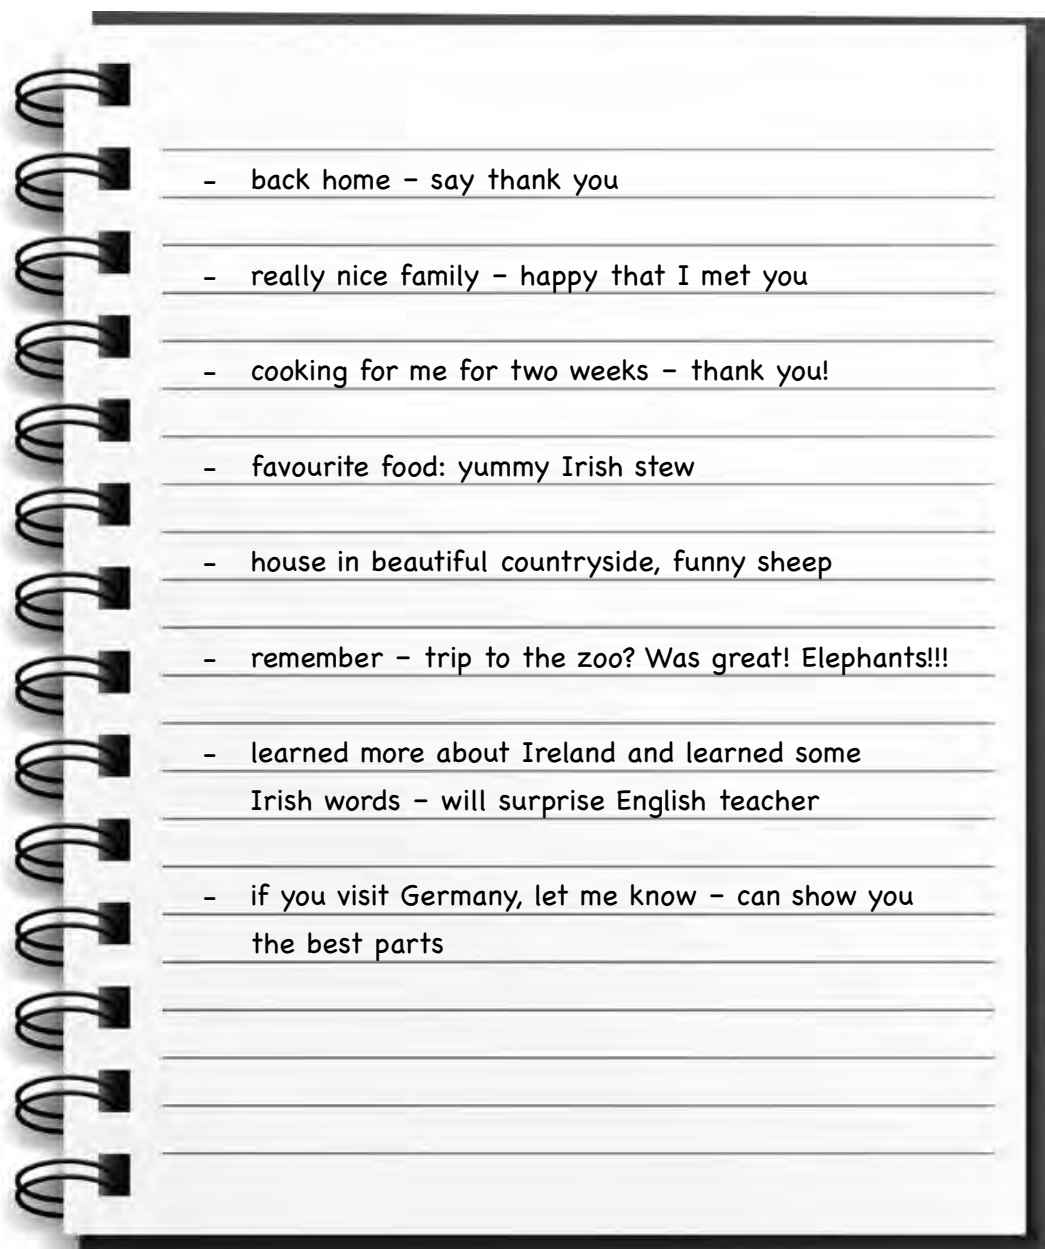 - back home – say thank you
- really nice family – happy that I met you
- cooking for me for two weeks – thank you!
- favourite food: yummy Irish stew
- house in beautiful countryside, funny sheep
- remember – trip to the zoo? Was great! Elephants!!!
- learned more about Ireland and learned some
Irish words – will surprise English teacher
- if you visit Germany, let me know – can show you
the best parts